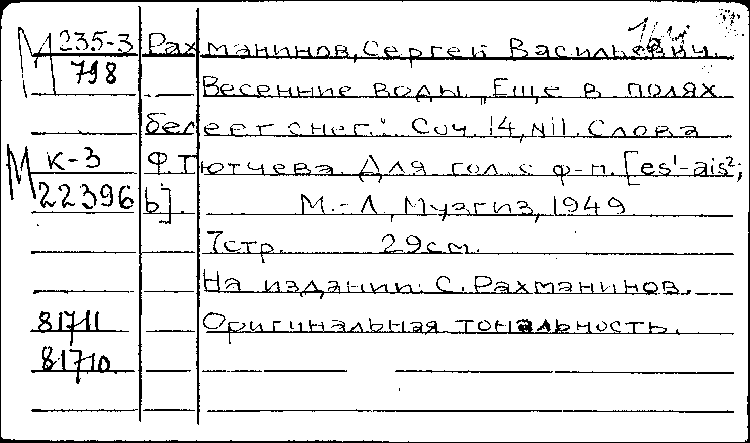 М 235-3 Рахманинов, Сергей Васильевич.
798
Весенние воды. "Еще в полях
белеет снег." Соч. 14, №11. Слова
М К-3 Ф. Тютчева. Для гол. с ф-п. [es¹-ais²;
22396 b].
М.-Л., Музгиз, 1949
7стр. 29см.
На издании: С. Рахманинов.
81711 Оригинальная тональность.
81710